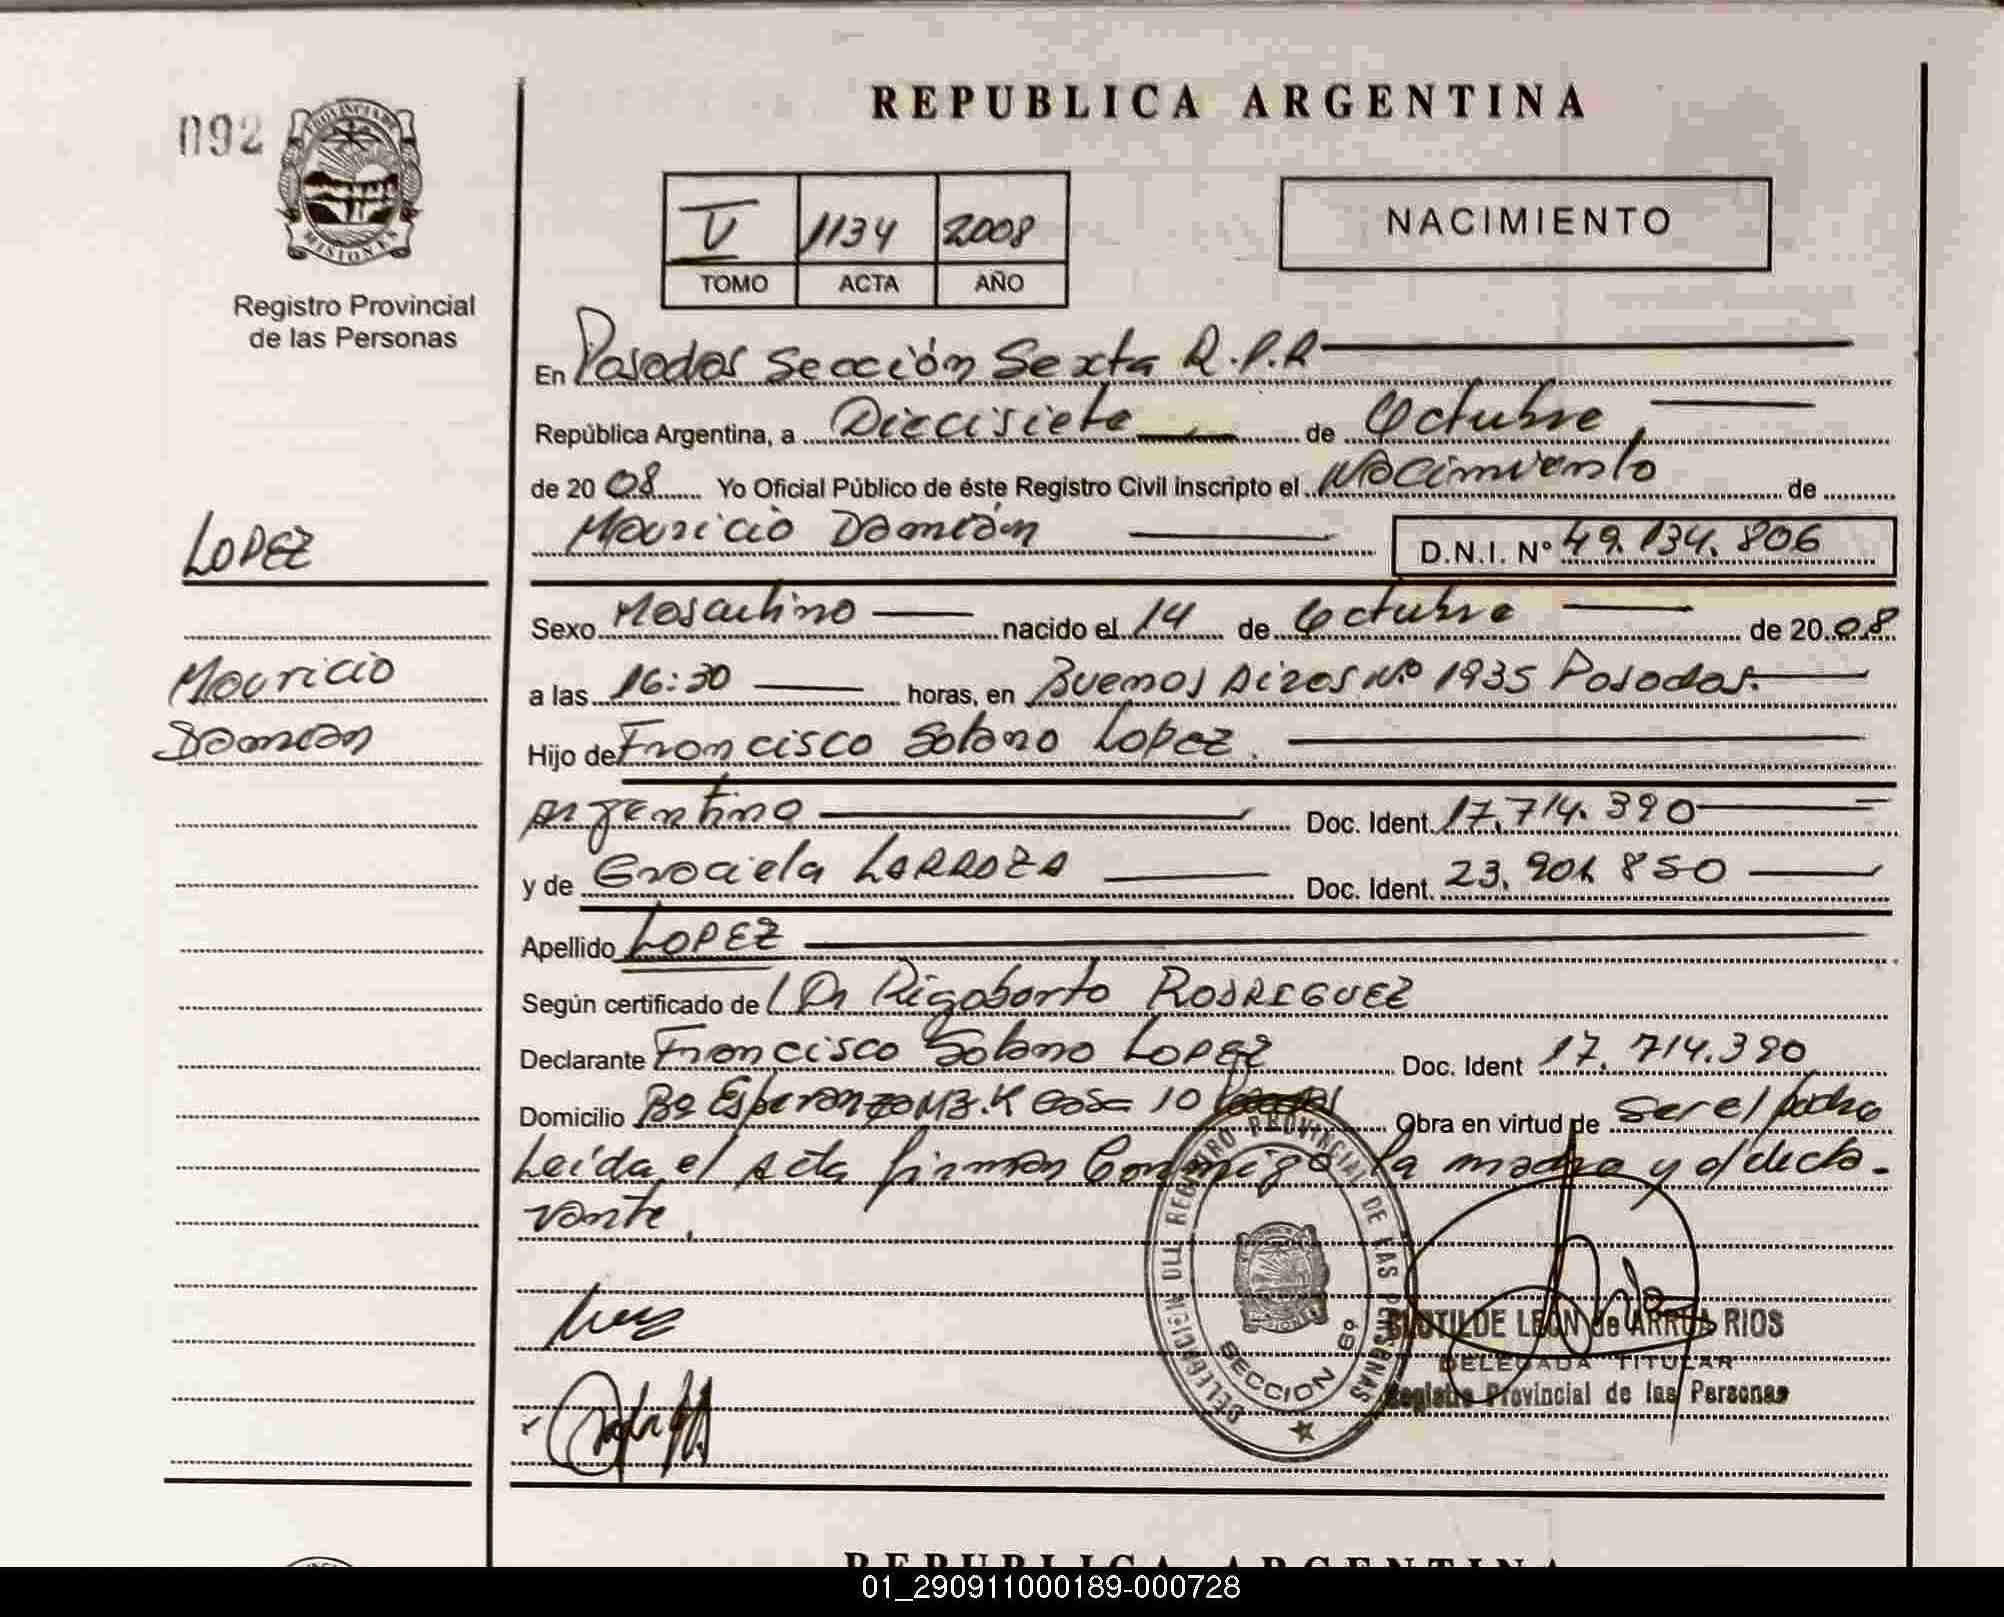 REPUBLICA ARGENTINA
092
PROVINCIA DE MISIONES
Registro Provincial
de las Personas
V 1134 2008
TOMO ACTA AÑO
NACIMIENTO
En Posadas Sección Sexta R.P.P
República Argentina, a Diecisiete de Octubre
de 2008 Yo Oficial Público de éste Registro Civil inscripto el Nacimiento de
Mauricio Damián D.N.I. Nº 49.134.806
LOPEZ
Mauricio
Damian
Sexo Masculino nacido el 14 de Octubre de 2008
a las 16:30 horas, en Buenos Aires Nº 1935 Posadas.
Hijo de Francisco Solano Lopez.
Argentino Doc. Ident. 17.714.390
y de Graciela LARROZA Doc. Ident. 23.901.850
Apellido LOPEZ
Según certificado de Dr Rigoberto RODRIGUEZ
Declarante Francisco Solano Lopez Doc. Ident 17.714.390
Domicilio Bº Esperanza MZ.K Casa 10 Obra en virtud de ser el padre
Leída el Acta firman Conmigo la madre y el decla-
rante.
DELEGACION DEL REGISTRO PROVINCIAL DE LAS PERSONAS
SECCION 6º
CLOTILDE LEON de ARRUA RIOS
DELEGADA TITULAR
Registro Provincial de las Personas
REPUBLICA ARGENTINA
01_290911000189-000728